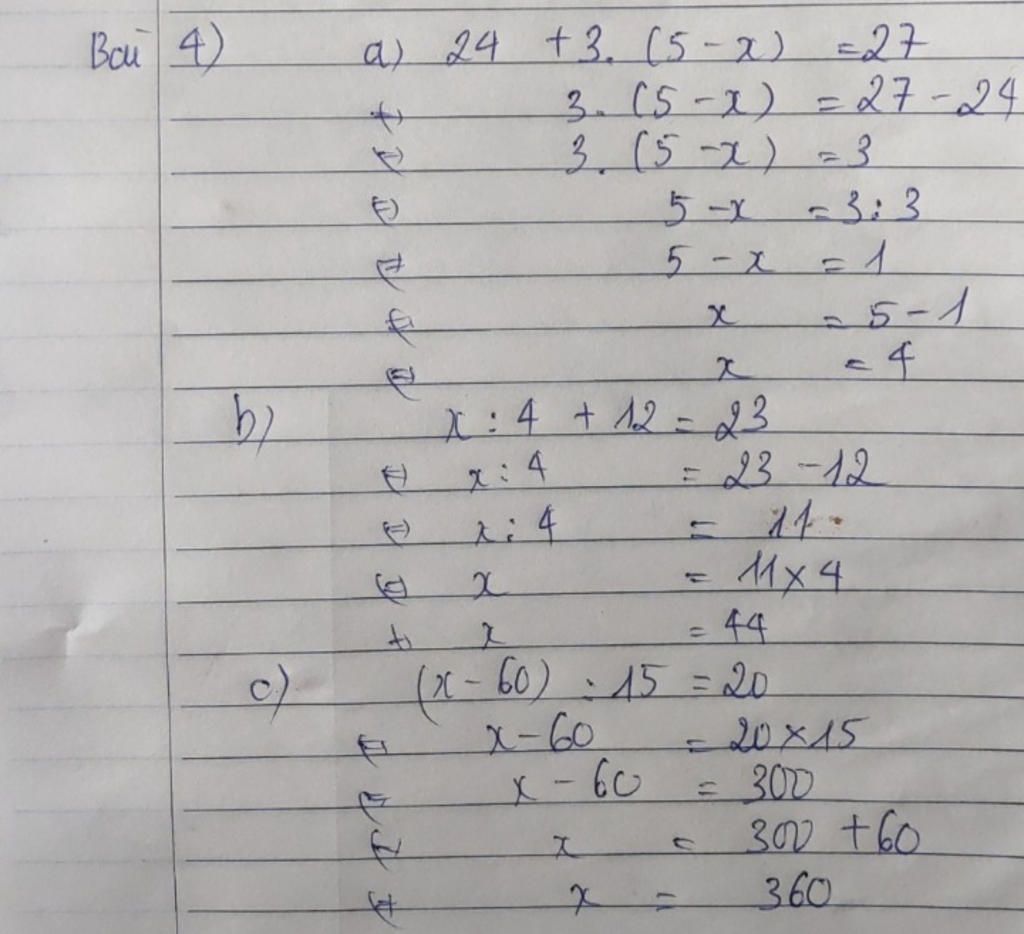 Bài 4) a) 24 + 3. (5 - x) = 27
⇔ 3. (5 - x) = 27 - 24
⇔ 3. (5 - x) = 3
⇔ 5 - x = 3 : 3
⇔ 5 - x = 1
⇔ x = 5 - 1
⇔ x = 4
b) x : 4 + 12 = 23
⇔ x : 4 = 23 - 12
⇔ x : 4 = 11
⇔ x = 11 × 4
⇔ x = 44
c) (x - 60) : 15 = 20
⇔ x - 60 = 20 × 15
⇔ x - 60 = 300
⇔ x = 300 + 60
⇔ x = 360